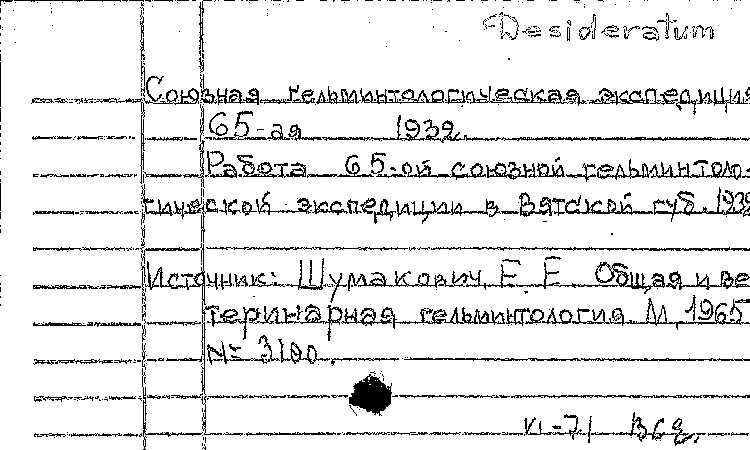 Desideratum
Союзная гельминтологическая экспедиция
65-ая 1932.
Работа 65-ой союзной гельминтоло-
гической экспедиции в Вятской губ. 1932
Источник: Шумакович, Е. Е. Общая и ве-
теринарная гельминтология. М., 1965
N= 3180.
VI-71